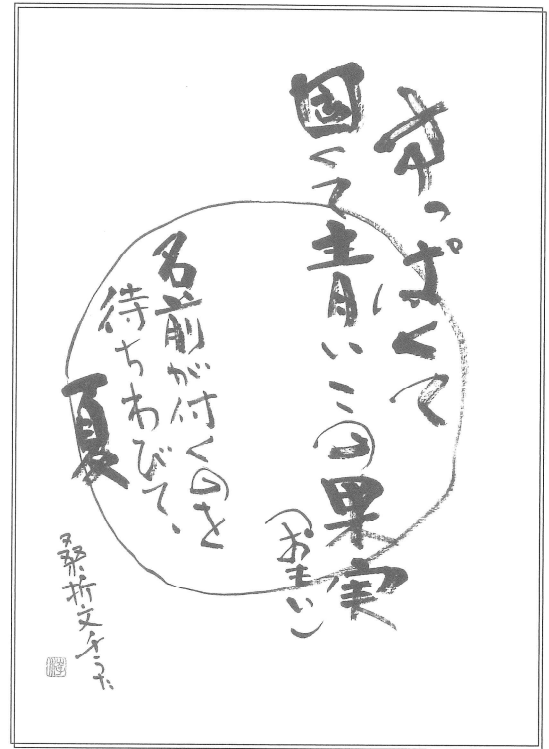 っぱくて
固くて青いこの果実
(おもい)
名前が付くのを
待ちわびて、
夏
桑折文子うた